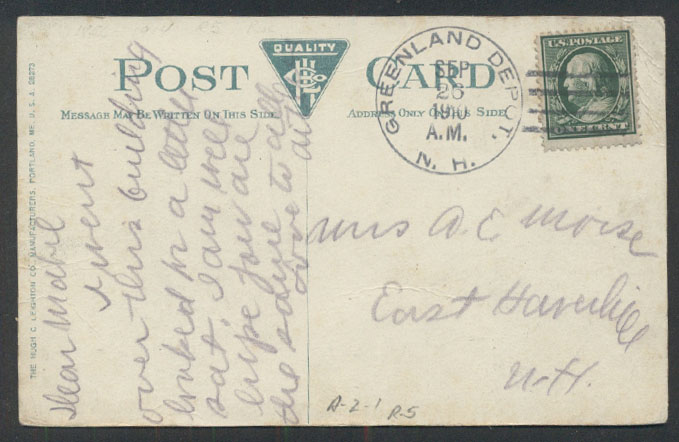 POST CARD
QUALITY
MESSAGE MAY BE WRITTEN ON THIS SIDE
ADDRESS ONLY ON THIS SIDE
THE HUGH C. LEIGHTON CO., MANUFACTURERS, PORTLAND, ME., U.S.A. 28273
GREENLAND DEPOT,
N. H.
SEP
26
1910
A.M.
U.S. POSTAGE
ONE CENT
Dear Mabel
I went
over this building
looked for a letter
sat. I am well
hope you are
the same
love to all
Mrs A. E. Morse
East Haverhill
N-H.
A-2-1 R-5